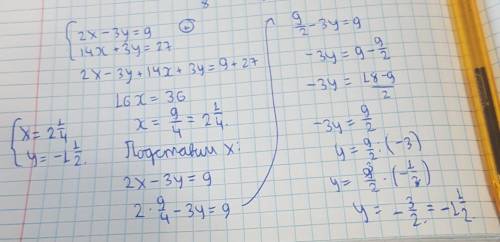 {2x-3y=9
14x+3y=27
2x-3y+14x+3y=9+27
16x=36
x=9/4=2 1/4.
Подставим x:
2x-3y=9
2·9/4-3y=9
{x=2 1/4
y=-1 1/2.
9/2-3y=9
-3y=9-9/2
-3y=18-9/2
-3y=9/2
y=9/2·(-3)
y=9/2·(-1/3)
y=-3/2=-1 1/2